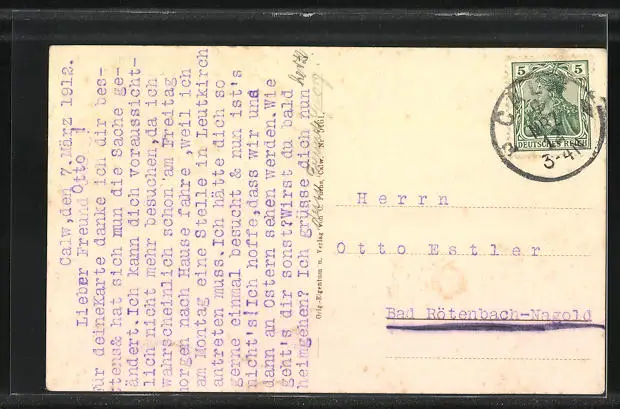 Calw,den 7.März 1912.
Lieber Freund Otto !
Für deineKarte danke ich dir bes-
tens& hat sich mun die Sache ge-
ändert.Ich kann dich voraussicht-
lich nicht mehr besuchen,da ich
wahrscheinlich schon am Freitag
morgen nach Hause fahre,weil ich
am Montag eine Stelle in Leutkirch
antreten muss.Ich hätte dich so
gerne einmal besucht & nun ist's
nicht's!Ich hoffe,dass wir uns
dann an Ostern sehen werden.Wie
geht's dir sonst?Wirst du bald
heimgehen? Ich grüsse dich nun
herzl.
Orig.-Eigentum u. Verlag
Calw.
5 5
DEUTSCHES REICH
3-4
Herrn
Otto Estler
Bad Rötenbach-Nagold